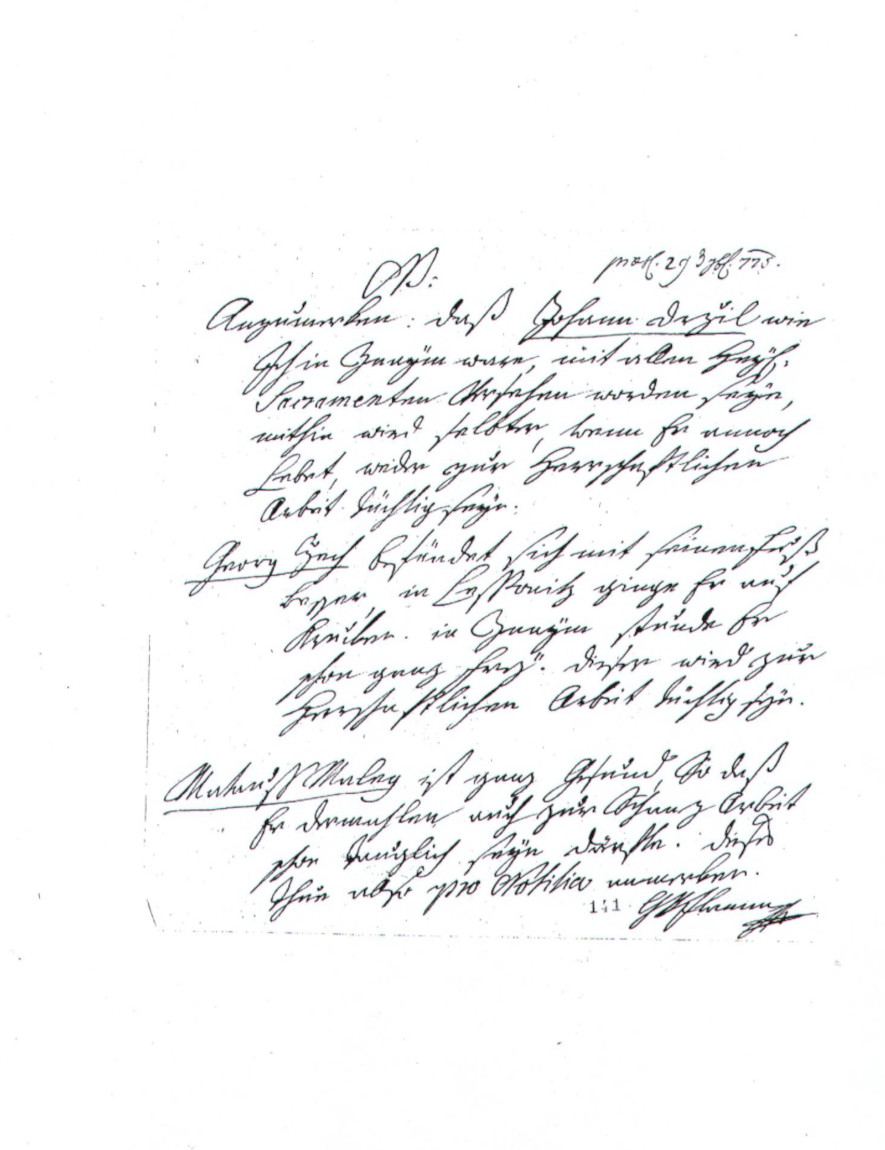 NB:
Anzumerken: daß Johann Drzil wie
Ich in Znaÿm ware, mit allen Heÿl:
Sacramenten Versehen worden seÿe,
mithin wird selbter, wenn Er annoch
Lebet, weder zur Herrschaftlichen
Arbeit tüchtig seÿn.
Georg Zech befündet sich mit seinen Fuß
besser, in ginge Er auf
Krucken. in Znaÿm stunde Er
schon ganz freÿ. dieser wird zur
Herrschaftlichen Arbeit tüchtig seÿn.
Matauß Maleg ist ganz Gesund, So daß
Er dermahlen auch zur Schanz Arbeit
schon tauglich seÿn dörfte. dieses
Thue also pro Notitia anmerken.
141